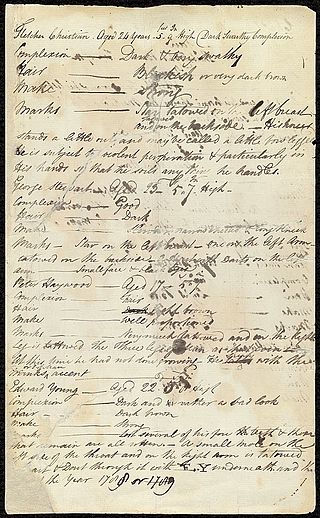 Fletcher Christian. Aged 24 Years - 5.9 High (Dark Swarthy Complexion
Complexion — Dark & very swarthy
Hair — Blackish or very dark brown
Make — Strong
Marks — Star tatowed on left breast
and on the backside - His knees
stands a little out and may be called a little bow legged
He is subject to violent perspiration & particularly in
His hands so that he soils any thing he handles.
George Stewart - Aged 23 5.7 High -
Complexion — Good
Hair — Dark
Make —
Marks - Star on the left breast - one on the left Arm
tatowed on the backside - with Darts on the left
arm - small face &
Peter Haywood — Aged 17 - 5.7
Complexion — Fair
Hair — light brown
Make — Well proportioned
Marks — Very much tatowed and on the right
Leg is tattowed the Three Legs of Man
At this time he had not done growing He with the
Manks accent
Edward Young — Aged 22 - High
Complexion — Dark and rather a bad look
Hair — Dark brown
Make — Strong
Marks — lost several of his fore teeth & those
that remain are all rotten - A small mole on the
side of the throat and on the right arm is tatowed
and Dart through it with E.Y underneath and the
the Year 1788 or 1789